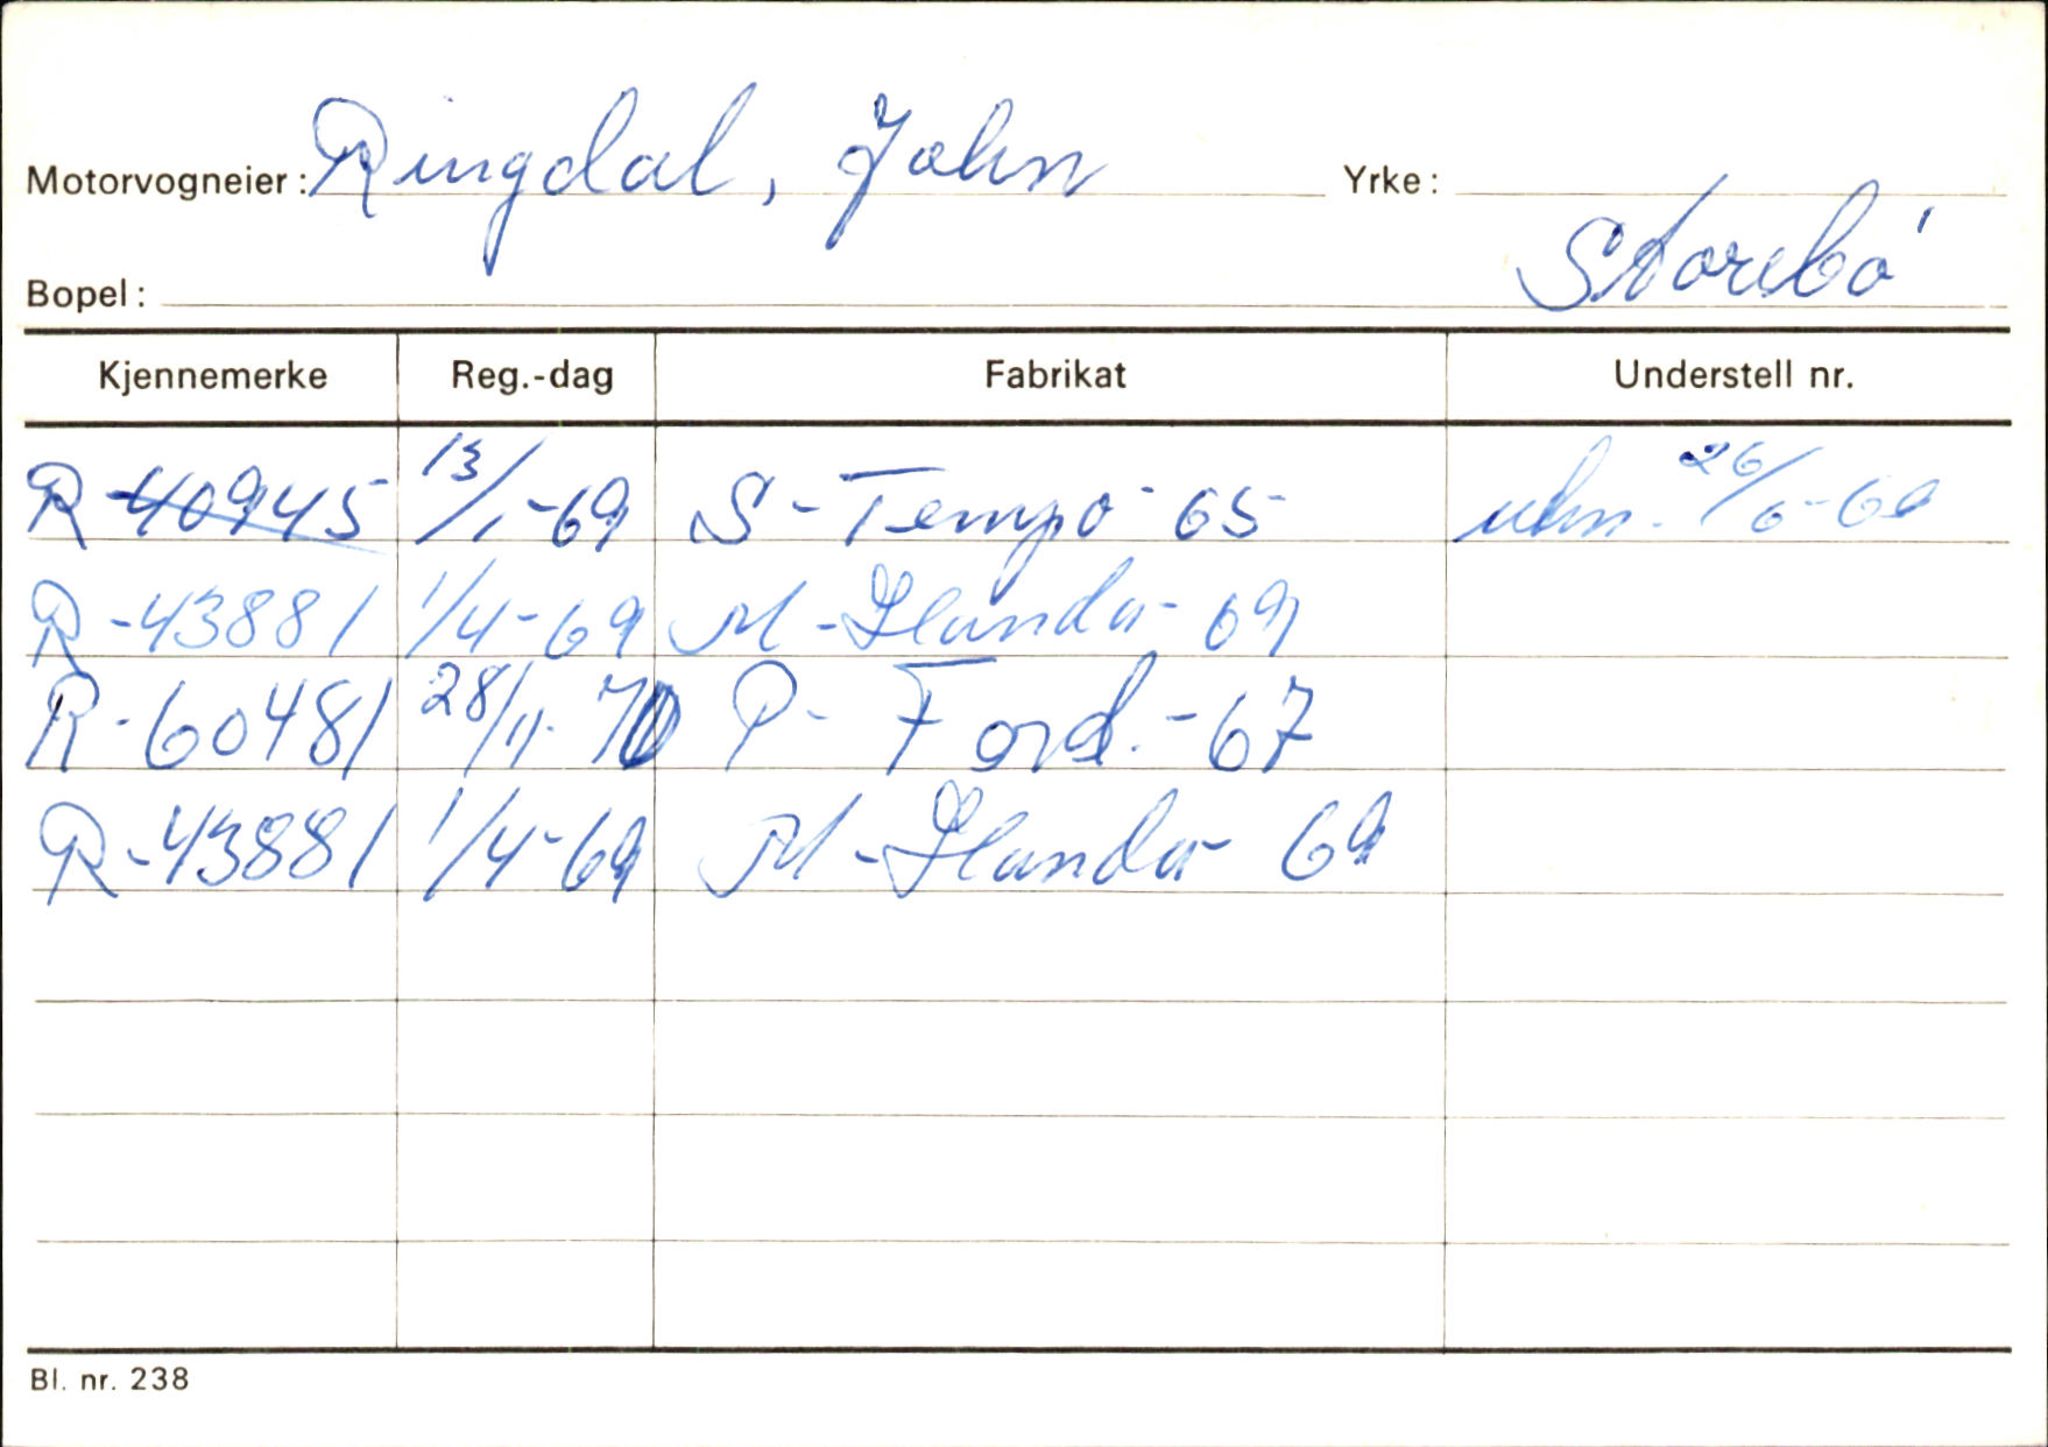 Motorvogneier: Ringdal, John Yrke:
Bopel: Storebó
Kjennemerke Reg.-dag Fabrikat Understell nr.
R-40945 13/1-69 S-Tempo-65 utm. 26/6-69
R-43881 1/4-69 M-Honda-69
R-60481 28/11-70 P-Ford.-67
R-43881 1/4-69 M-Honda-69
Bl. nr. 238